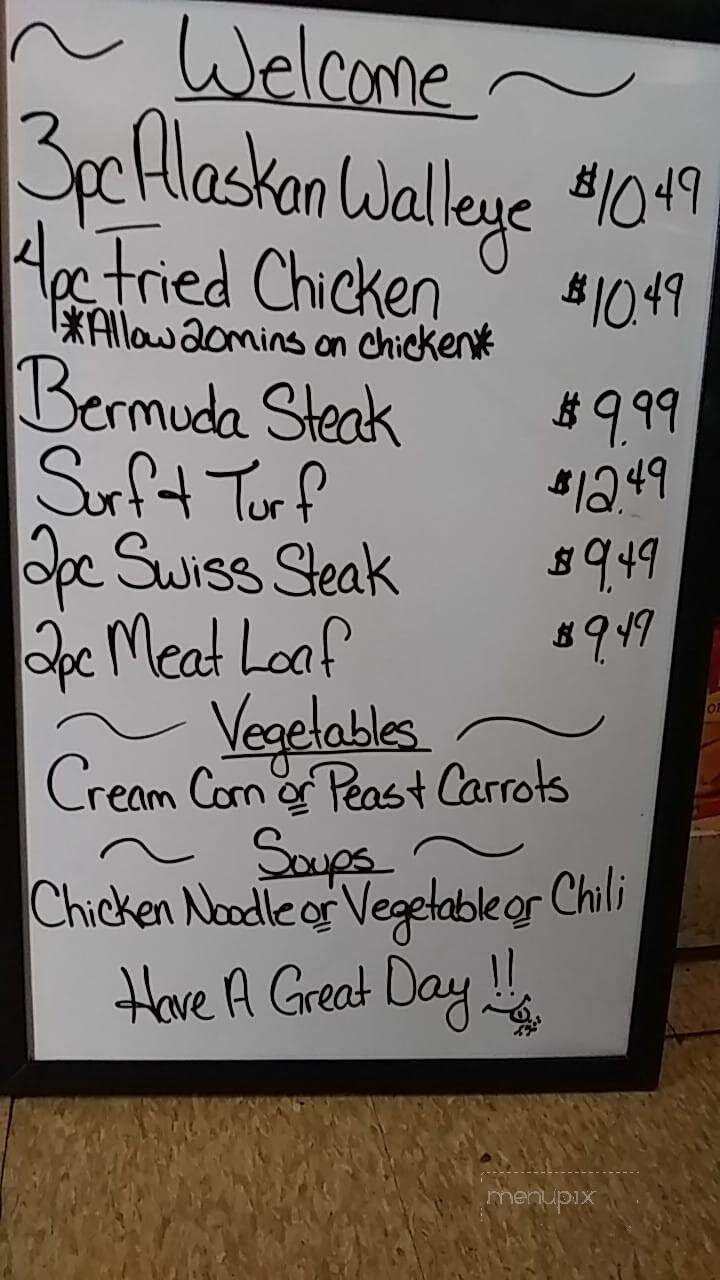 ~ Welcome ~
3pc Alaskan Walleye $10.49
4pc Fried Chicken $10.49
*Allow 20mins on chicken*
Bermuda Steak $9.99
Surf & Turf $12.49
2pc Swiss Steak $9.49
2pc Meat Loaf $9.49
~ Vegetables ~
Cream Corn or Peas & Carrots
~ Soups ~
Chicken Noodle or Vegetable or Chili
Have A Great Day !!
menupix